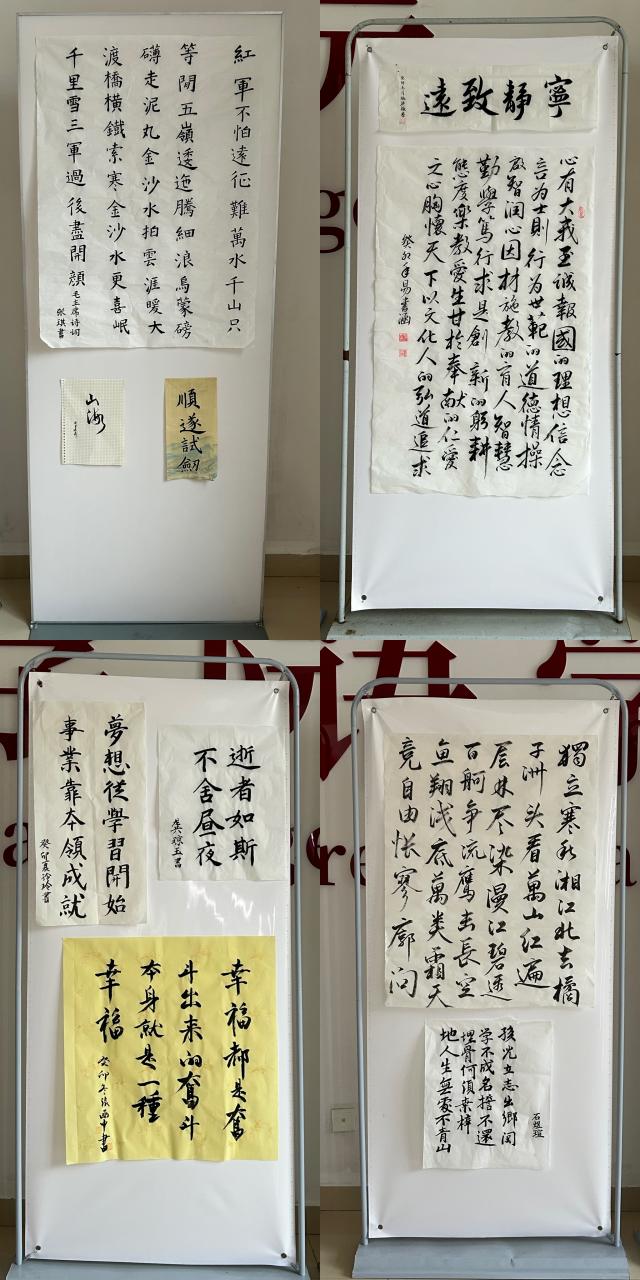 紅軍不怕遠征難萬水千山只
等閒五嶺逶迤騰細浪烏蒙磅
礴走泥丸金沙水拍雲涯暖大
渡橋橫鐵索寒金沙水更喜岷
千里雪三軍過後盡開顏
毛主席诗词
张琪書
山海
順遂試劒
寧靜致遠
心有大我至誠報國的理想信念
言为士則行为世範的道德情操
啟智润心因材施教的育人智慧
勤學篤行求是創新的躬耕
態度樂教愛生甘於奉献的仁愛
之心胸懷天下以文化人的弘道追求
癸卯年易書涵
逝者如斯
不舍昼夜
龚琼玉書
夢想從學習開始
事業靠本領成就
癸卯夏徐玲書
幸福都是奮
斗出来的奮斗
本身就是一種
幸福
癸卯冬張西中書
獨立寒秋湘江北去橘
子洲头看萬山红遍
层林尽染漫江碧透
百舸争流鹰击長空
鱼翔浅底萬类霜天
竞自由怅寥廓问
石煜瑄
孩兒立志出鄉関
学不成名誓不還
埋骨何須桑梓
地人生無處不青山